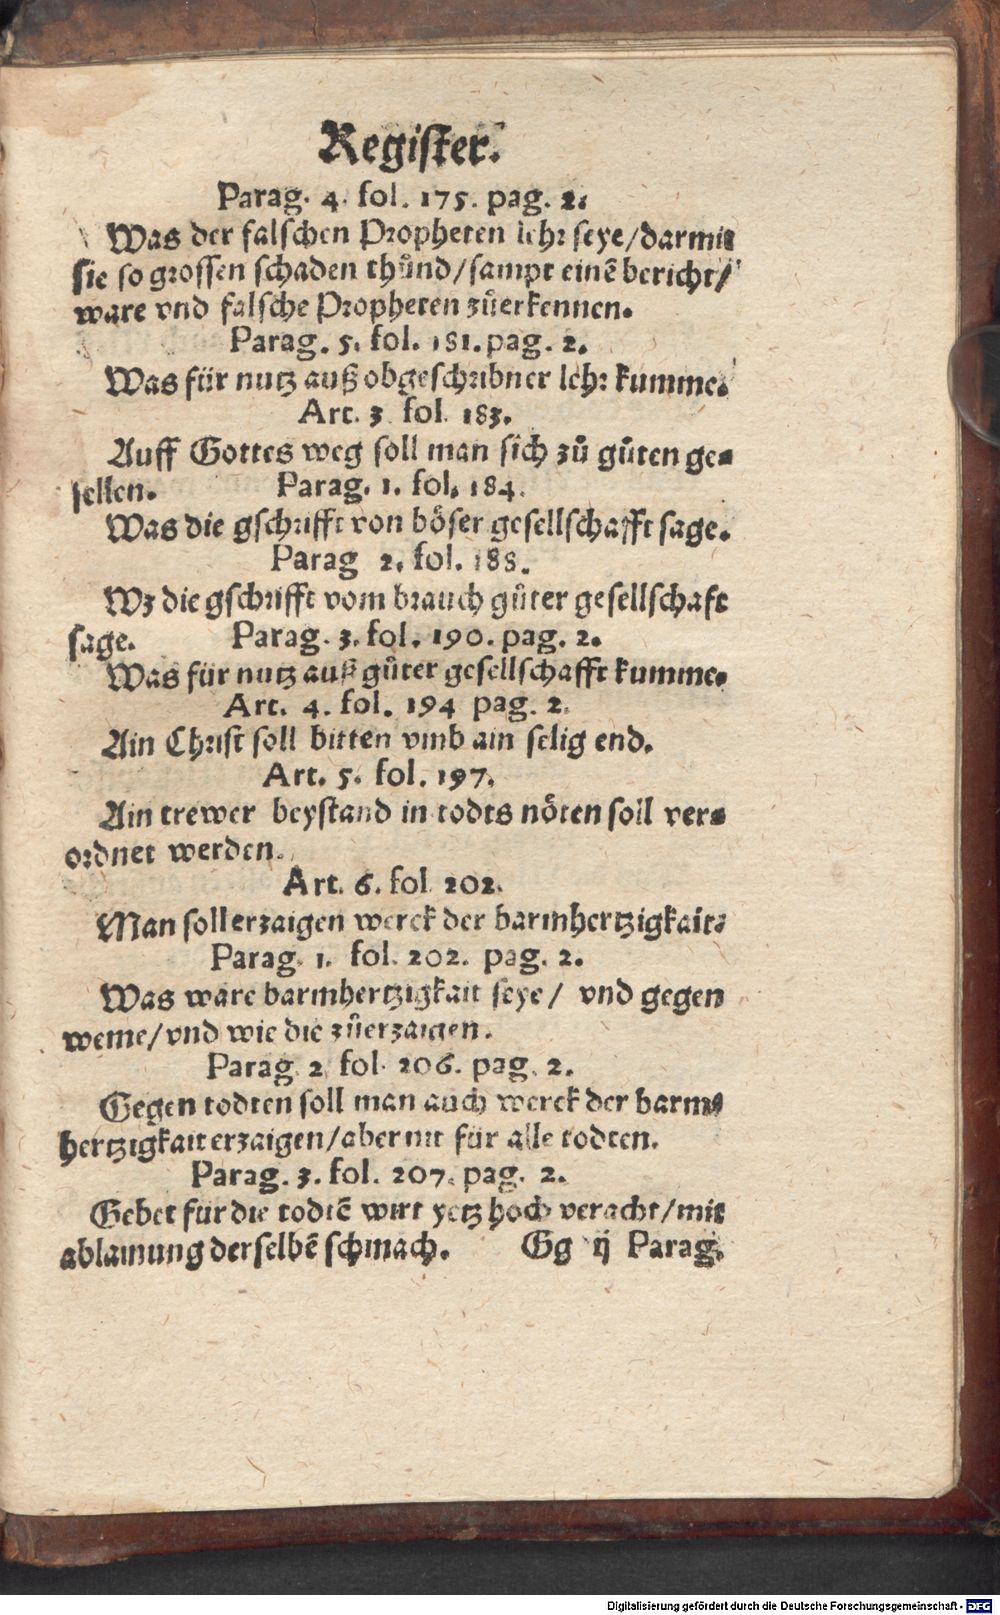 Register.
Parag. 4. fol. 175. pag. 2.
Was der falschen Propheten lehr seye/darmit
sie so grossen schaden thůnd/sampt einẽ bericht/
ware vnd falsche Propheten zůerkennen.
Parag. 5. fol. 181. pag. 2.
Was für nutz auß obgeschribner lehr kumme.
Art. 3 fol. 183.
Auff Gottes weg soll man sich zů gůten ge-
sellen. Parag. 1. fol. 184.
Was die gschrifft von böser gesellschafft sage.
Parag 2. fol. 188.
Wz die gschrifft vom brauch gůter gesellschaft
sage. Parag. 3. fol. 190. pag. 2.
Was für nutz auß gůter gesellschafft kumme.
Art. 4. fol. 194 pag. 2.
Ain Christ soll bitten vmb ain selig end.
Art. 5. fol. 197.
Ain trewer beystand in todts nöten soll ver-
ordnet werden.
Art. 6. fol. 202.
Man soll erzaigen werck der barmhertzigkait.
Parag. 1. fol. 202. pag. 2.
Was ware barmhertzigkait seye/ vnd gegen
weme/vnd wie die zůerzaigen.
Parag. 2 fol. 206. pag. 2.
Gegen todten soll man auch werck der barm-
hertzigkait erzaigen/aber nit für alle todten.
Parag. 3. fol. 207. pag. 2.
Gebet für die todtẽ wirt yetz hoch veracht/mit
ablainung derselbẽ schmach. Gg ij Parag.
Digitalisierung gefördert durch die Deutsche Forschungsgemeinschaft - DFG